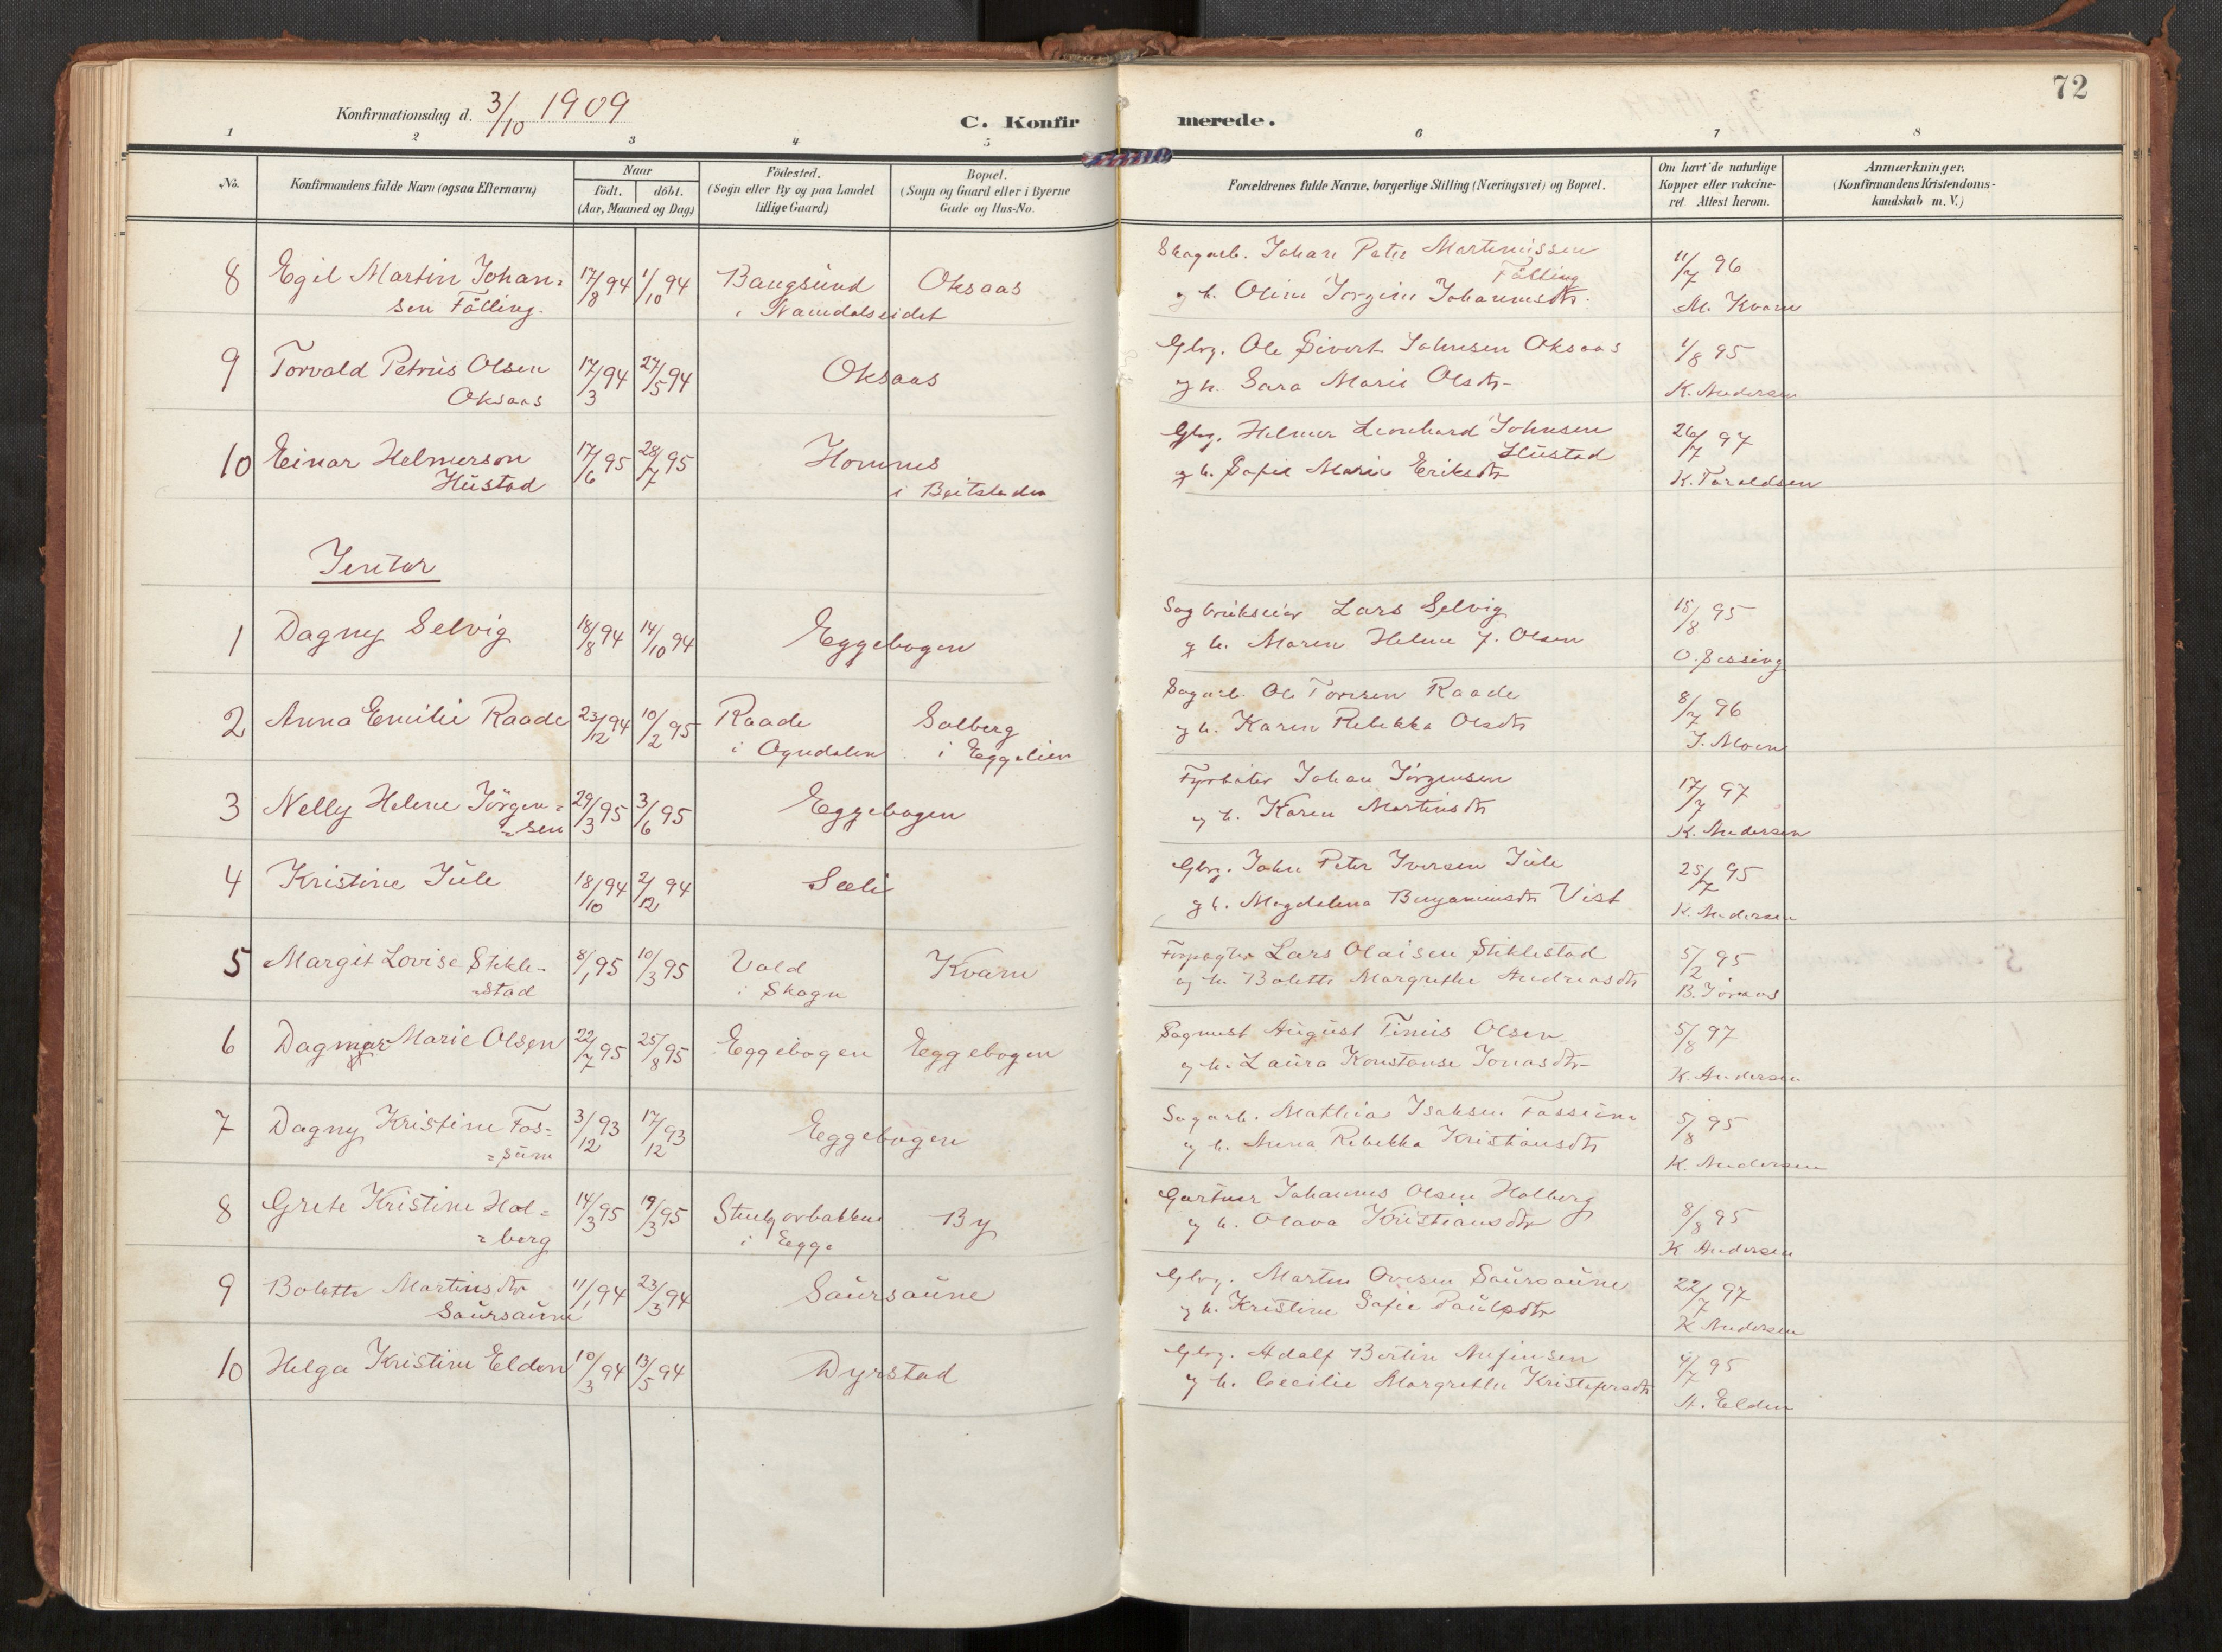 72
Konfirmationsdag d. 3/10 1909
C. Konfirmerede.
1 2 3 4 5 6 7 8
No.
Konfirmandens fulde Navn (ogsaa Efternavn)
Naar
födt. döbt.
(Aar, Maaned og Dag)
Födested.
(Sogn eller By og paa Landet
tillige Gaard)
Bopæl.
(Sogn og Gaard eller i Byerne
Gade og Hus-No.
Forældrenes fulde Navne, borgerlige Stilling (Næringsvei) og Bopæl.
Om havt de naturlige
Kopper eller vakcine-
ret. Attest herom.
Anmærkninger.
(Konfirmandens Kristendoms-
kundskab m. V.)
8 Egil Martin Johan= 17/8 94 1/10 94 Bangsund Oksaas Skogarb. Johan Peter Martinussen 11/7 96
sen Fölling. i Namdalseidet Fölling
og h. Oline Jorgine Johannesdtr. M. Kvam
9 Torvald Petrus Olsen 17/3 94 27/5 94 Oksaas Gbrg. Ole Sivert Johnsen Oksaas 1/8 95
Oksaas og h. Sara Marie Olsdtr. K. Andersen
10 Einar Helmerson 17/6 95 28/7 95 Homnes Gbrg. Helmer Leonhard Johnsen 26/7 97
Hustad i Beitstaden Hustad
og h. Sofie Marie Eriksdtr K. Taraldsen
Jenter
1 Dagny Selvig 18/8 94 14/10 94 Eggebogen Sagbrukseier Lars Selvig 15/8 95
og h. Maren Helene f. Olsen O. Sessing
2 Anna Emilie Raade 23/12 94 10/2 95 Raade Solberg Sagarb. Ole Toresen Raade 8/7 96
i Ogndalen i Eggelien og h. Karen Rebekka Olsdtr J. Moen
3 Nelly Helene Jörgen= 29/3 95 3/6 95 Eggebogen Fyrböter Johan Jörgensen 17/7 97
=sen og h. Karen Martinsdtr K. Andersen
4 Kristine Jule 18/10 94 2/12 94 Sæli Gbrg. John Peter Iversen Jule 25/7 95
og h. Magdalena Benjaminsdtr Vist K. Andersen
5 Margit Lovise Stikle- 8/1 95 10/3 95 Vold Kvam Forpagter Lars Olaisen Stiklestad 5/2 95
=stad i Skogn og h. Bolette Margrethe Andreasdtr
6 Dagmar Marie Olsen 22/7 95 25/8 95 Eggebogen Eggebogen Sagmest August Tinus Olsen 5/8 97
og h. Laura Konstanse Jonasdtr K. Andersen
7 Dagny Kristine Fos= 3/12 93 17/12 93 Eggebogen Sagarb. Mathias Isaksen Fossum 5/8 95
=sum og h. Anna Rebekka Kristiansdtr K. Andersen
8 Grete Kristine Hol= 14/3 95 19/3 95 By Gartner Johannes Olsen Holberg 8/8 95
=berg i Egge og h. Olava Kristiansdtr K Andersen
9 Bolette Martinsdtr 11/1 94 23/3 94 Saursaune Gbrg. Martin Ovesen Saursaune 22/7 97
Saursaune og h. Kristine Sofie Paulsdtr K Andersen
10 Helga Kristine Elden 10/3 94 13/5 94 Dyrstad Gbrg. Adolf Bertin Anfinsen 4/7 95
og h. Cecilie Margrethe Kristofersdtr A. Elden